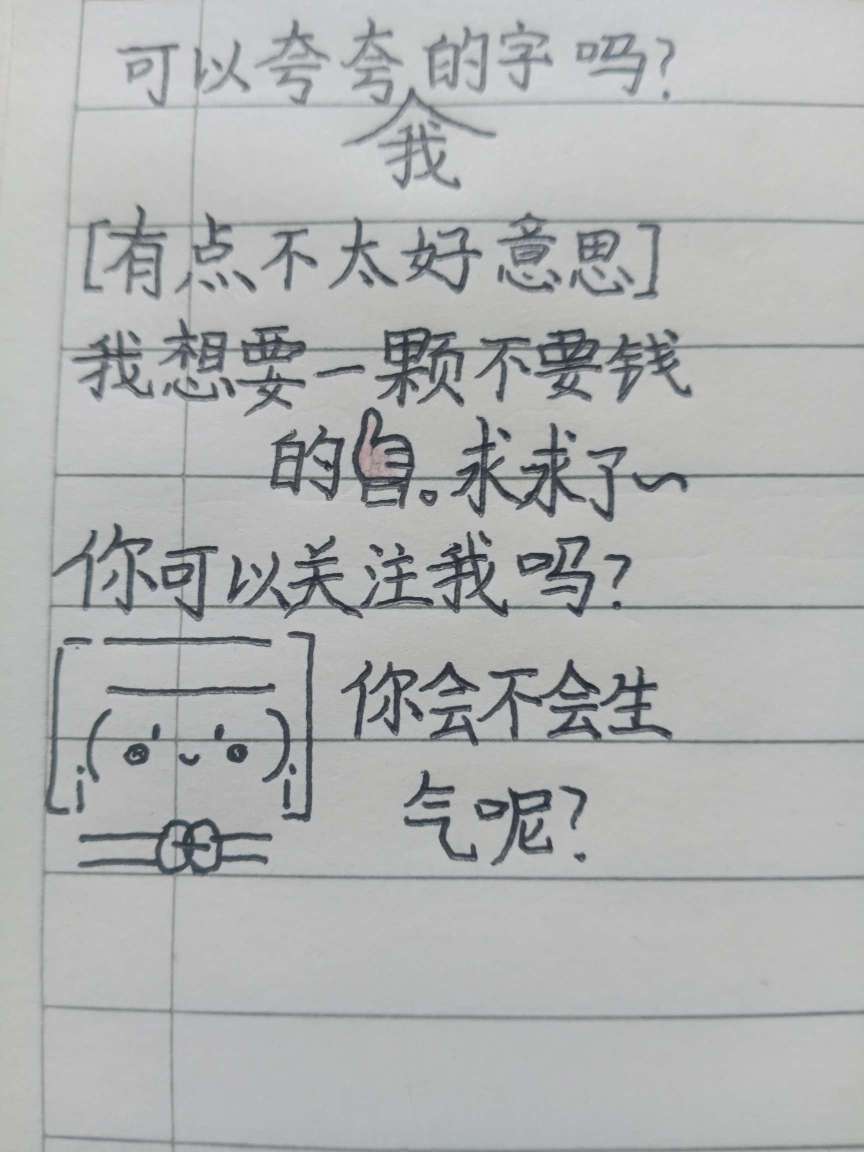 可以夸夸我的字吗?
[有点不太好意思]
我想要一颗不要钱
的👍。求求了~
你可以关注我吗?
你会不会生
气呢?